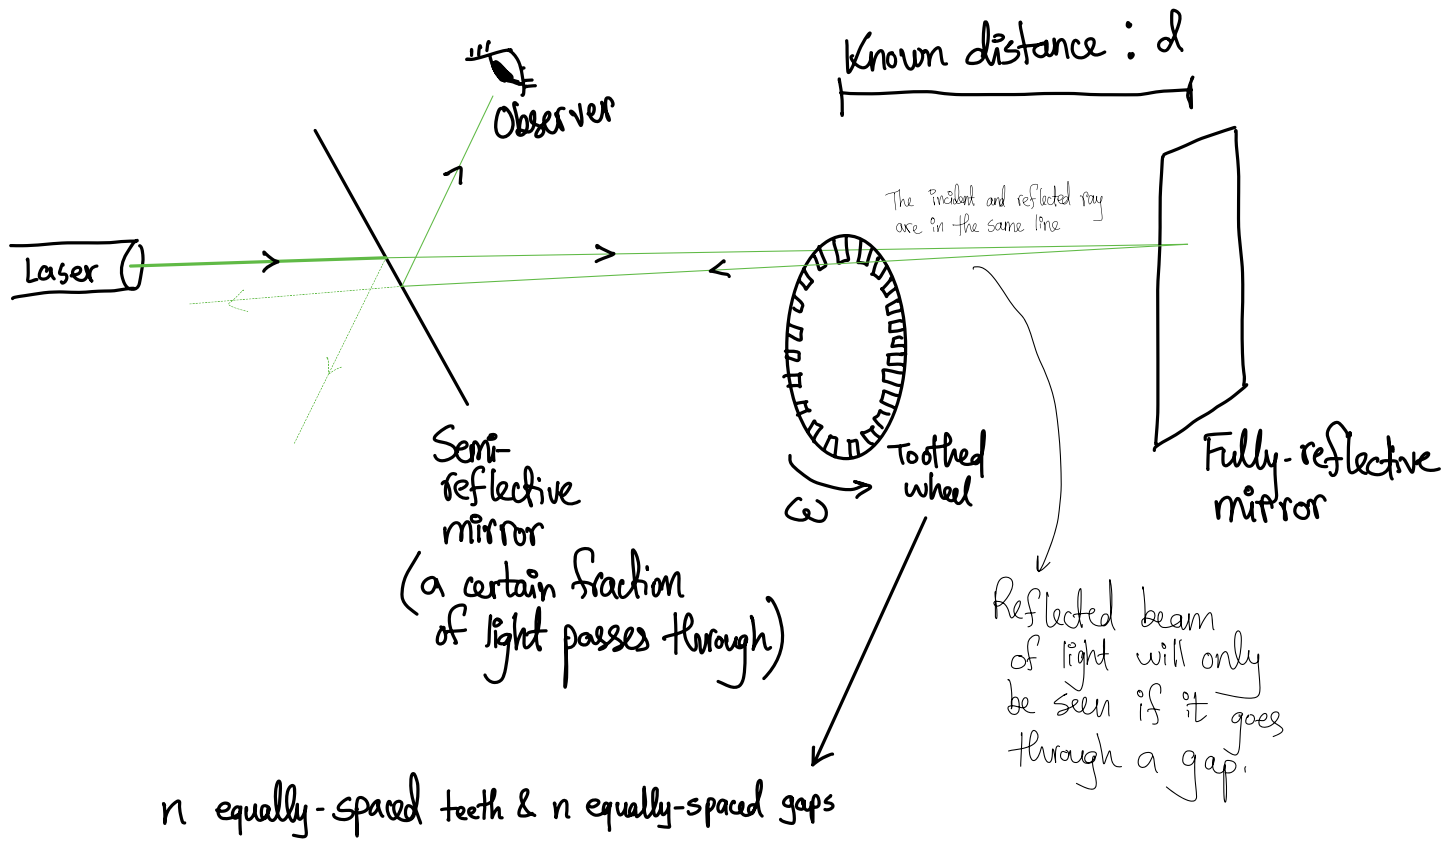 Known distance : d
Observer
The incident and reflected ray
are in the same line
Laser
Semi-
reflective
mirror
(a certain fraction
of light passes through)
ω
Toothed
wheel
Fully-reflective
mirror
Reflected beam
of light will only
be seen if it goes
through a gap.
n equally-spaced teeth & n equally-spaced gaps